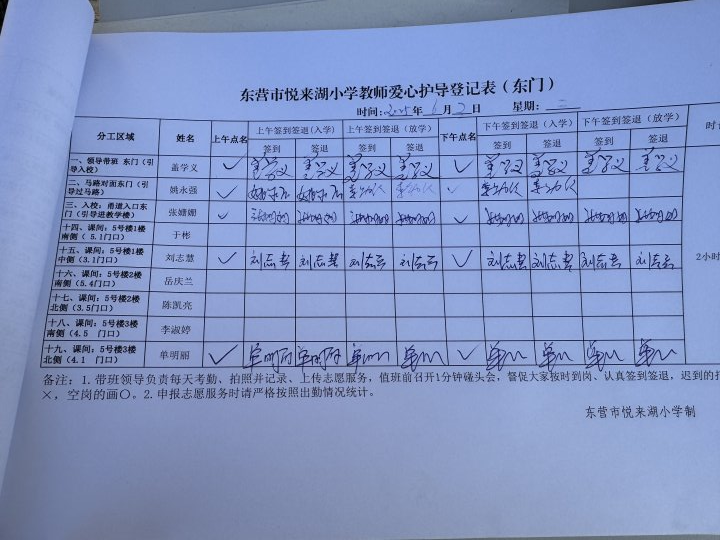 东营市悦来湖小学教师爱心护导登记表（东门）
时间：2025年 6月 2日 星期：二
分工区域 姓名 上午点名 上午签到签退（入学） 上午签到签退（放学） 下午点名 下午签到签退（入学） 下午签到签退（放学） 时
签到 签退 签到 签退 签到 签退 签到 签退
一、领导带班 东门（引导入校） 盖学义 ✓ 盖学义 盖学义 盖学义 盖学义 ✓ 盖学义 盖学义 盖学义 盖学义
二、马路对面东门（引导过马路） 姚永强 ✓ ✓
三、入校：甬道入口东门（引导进教学楼） 张姗姗 ✓ 张姗姗 张姗姗 张姗姗 张姗姗 ✓ 张姗姗 张姗姗 张姗姗 张姗姗
十四、课间：5号楼1楼南侧（ 5.1门口） 于彬
十五、课间：5号楼1楼中侧（3.1门口） 刘志慧 ✓ 刘志慧 刘志慧 刘志慧 刘志慧 ✓ 刘志慧 刘志慧 刘志慧 刘志慧 2小时
十六、课间：5号楼2楼南侧（5.4门口） 岳庆兰
十七、课间：5号楼2楼北侧（3.5门口） 陈凯亮
十八、课间：5号楼3楼南侧（4.5 门口） 李淑婷
十九、课间：5号楼3楼北侧（4.1 门口） 单明丽 ✓ 单明丽 单明丽 单明丽 ✓
备注：1.带班领导负责每天考勤、拍照并记录、上传志愿服务，值班前召开1分钟碰头会，督促大家按时到岗、认真签到签退，迟到的打
×，空岗的画〇。2.申报志愿服务时请严格按照出勤情况统计。
东营市悦来湖小学制